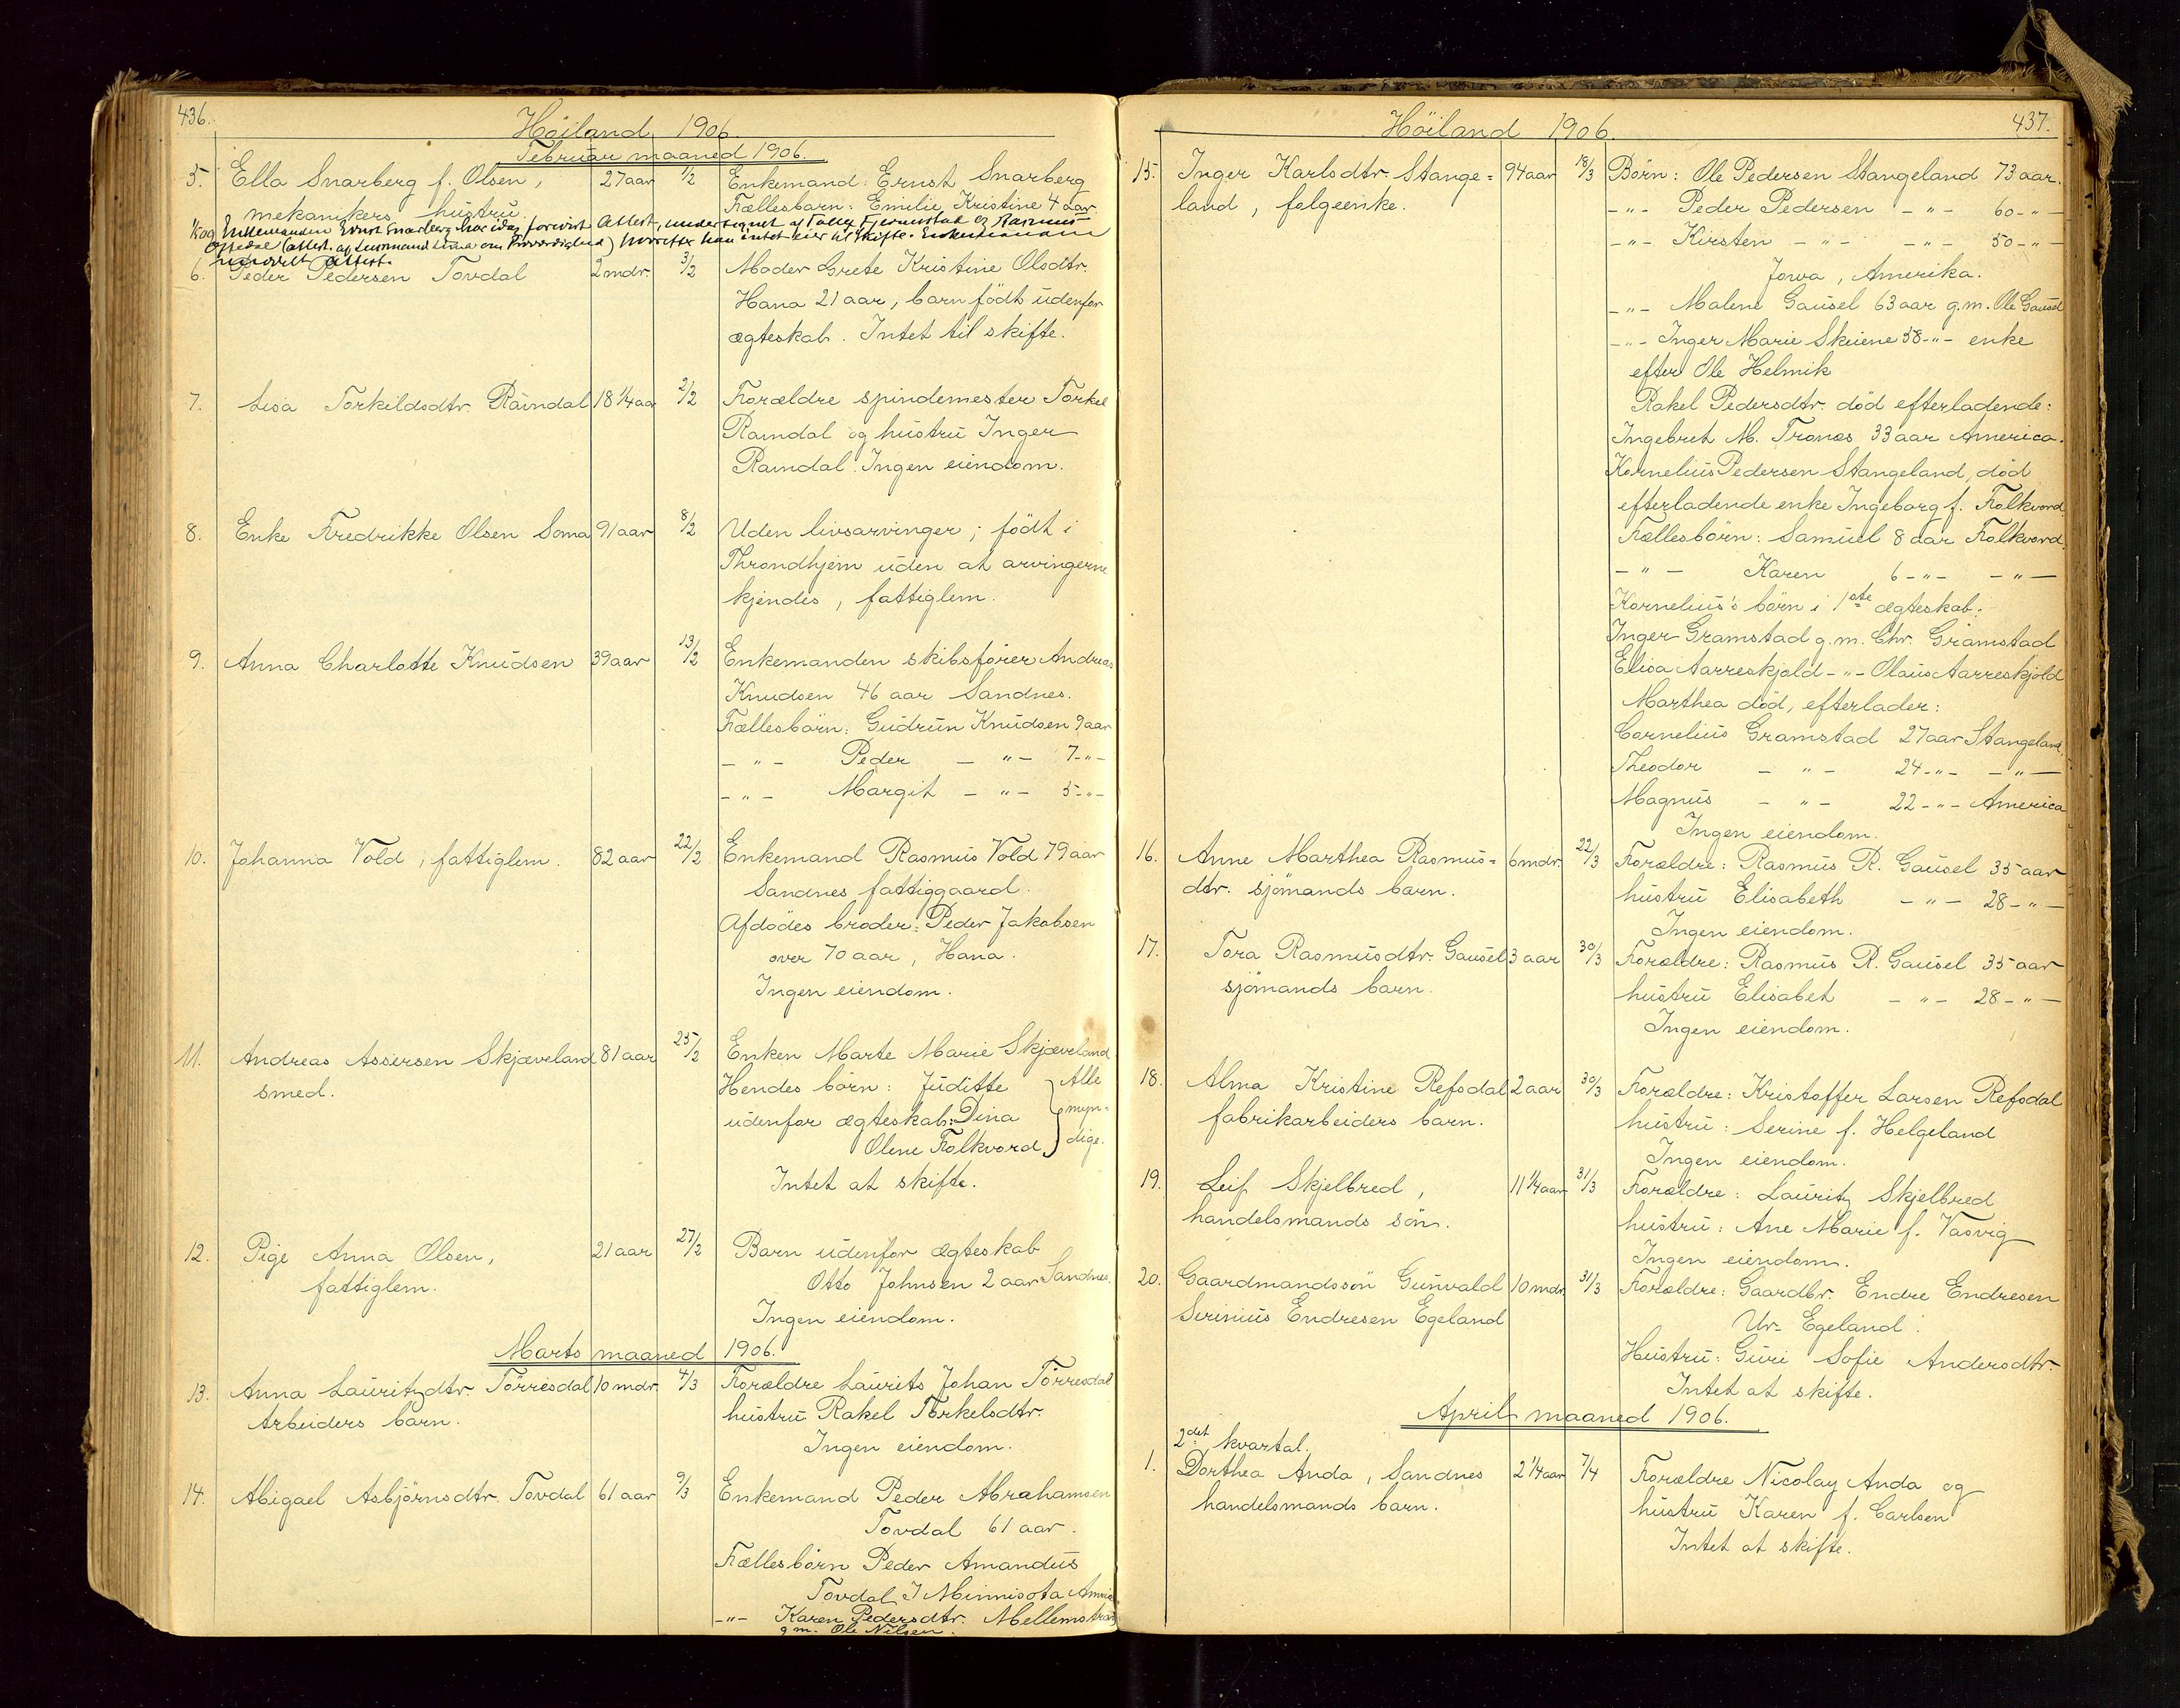 436.
Höiland 1906.
Februar maaned 1906.
5. Ella Snarberg f. Olsen, 27 aar 1/2 Enkemand: Ernst Snarberg
mekanikers hustru. Fællesbarn: Emilie Kristine 4 aar.
Enkemanden Ernst Snarberg har idag forevist Attest, underskrevet af og Rasmus
(attest. af Lensmand om ) hvorefter han intet eier til skifte. Enkemanden
Attest.
6. Peder Pedersen Tovdal 2 mdr. 3/2 Moder Grete Kristine Olsdtr.
Hana 21 aar, barn födt udenfor
ægteskab. Intet til skifte.
7. Lisa Torkildsdtr. Ramdal 18 1/4 aar 2/2 Forældre spindemester Torkel
Ramdal og hustru Inger
Ramdal. Ingen eiendom.
8. Enke Fredrikke Olsen Soma 91 aar 8/2 Uden livsarvinger; födt i
Throndhjem uden at arvingerne
kjendes, fattiglem.
9. Anna Charlotte Knudsen 39 aar 13/2 Enkemanden skibsförer Andreas
Knudsen 46 aar Sandnes.
Fællesbörn: Gudrun Knudsen 9 aar
- " - Peder - " - 7 - " -
- " - Margit - " - 5 - " -
10. Johanna Vold, fattiglem. 82 aar 22/2 Enkemand Rasmus Vold 79 aar
Sandnes fattiggaard.
Afdödes broder: Peder Jakobsen
over 70 aar, Hana.
Ingen eiendom.
11. Andreas Assersen Skjæveland 81 aar 25/2 Enken Marte Marie Skjæveland
smed. Hendes börn: Juditte } Alle
udenfor ægteskab: Dina myn=
Olene Folkvord dige.
Intet at skifte.
12. Pige Anna Olsen, 21 aar 27/2 Barn udenfor ægteskab
fattiglem. Otto Johnsen 2 aar Sandnes.
Ingen eiendom.
Marts maaned 1906.
13. Anna Lauritzdtr. Törresdal 10 mdr. 4/3 Forældre Laurits Johan Törresdal
Arbeiders barn. hustru Rakel Torkelsdtr.
Ingen eiendom.
14. Abigael Asbjörnsdtr. Tovdal 61 aar 9/3 Enkemand Peder Abrahamsen
Tovdal 61 aar.
Fællesbörn Peder Amandus
Tovdal I Minnisota
- " - Karen Pedersdtr.
g.m. Ole Nilsen.
437.
Höiland 1906.
15. Inger Karlsdtr. Stange= 94 aar 18/3 Börn: Ole Pedersen Stangeland 73 aar.
land, folgeenke. - " - Peder Pedersen - " - 60 - " -
- " - Kirsten - " - - " - 50 - " -
Jowa, Amerika.
- " - Malene Gausel 63 aar g.m. Ole Gausel
- " - Inger Marie Skeiene 58 - " - enke
efter Ole Helmik
Rakel Pedersdtr. död efterladende:
Ingebret M. Tronæs 33 aar America.
Kornelius Pedersen Stangeland, död
efterladende enke Ingeborg f. Folkvord.
Fællesbörn: Samuel 8 aar Folkvord.
- " - Karen 6 - " - - " -
Kornelius's börn i 1ste ægteskab:
Inger Gramstad g.m. Chr. Gramstad
Elisa Aarreskjold - " - Olaus Aarreskjold
Marthea död, efterlader:
Cornelius Gramstad 27 aar Stangeland.
Theodor - " - 24 - " - - " -
Magnus - " - 22 - " - America
Ingen eiendom.
16. Anne Marthea Rasmus= 6 mdr. 22/3 Forældre: Rasmus R. Gausel 35 aar
dtr. sjömands barn. hustru Elisabeth - " - 28 - " -
Ingen eiendom.
17. Tora Rasmusdtr. Gausel 3 aar 30/3 Forældre: Rasmus R. Gausel 35 aar
sjömands barn. hustru Elisabet - " - 28 - " -
Ingen eiendom.
18. Alma Kristine Refsdal 2 aar 30/3 Forældre: Kristoffer Larsen Refsdal
fabrikarbeiders barn. hustru: Serine f. Helgeland
Ingen eiendom.
19. Leif Skjelbred, 11 1/4 aar 31/3 Forældre: Lauritz Skjelbred
handelsmands sön. hustru: Ane Marie f. Vasvig
Ingen eiendom.
20. Gaardmandssön Gunvald 10 mdr. 31/3 Forældre: Gaardbr. Endre Endresen
Serinius Endresen Egeland Egeland.
Hustru: Guri Sofie Andersdtr.
Intet at skifte.
April maaned 1906.
2det kvartal.
1. Dorthea Anda, Sandnes 2 1/4 aar 7/4 Forældre Nicolay Anda og
handelsmands barn. hustru Karen f. Carlsen
Intet at skifte.